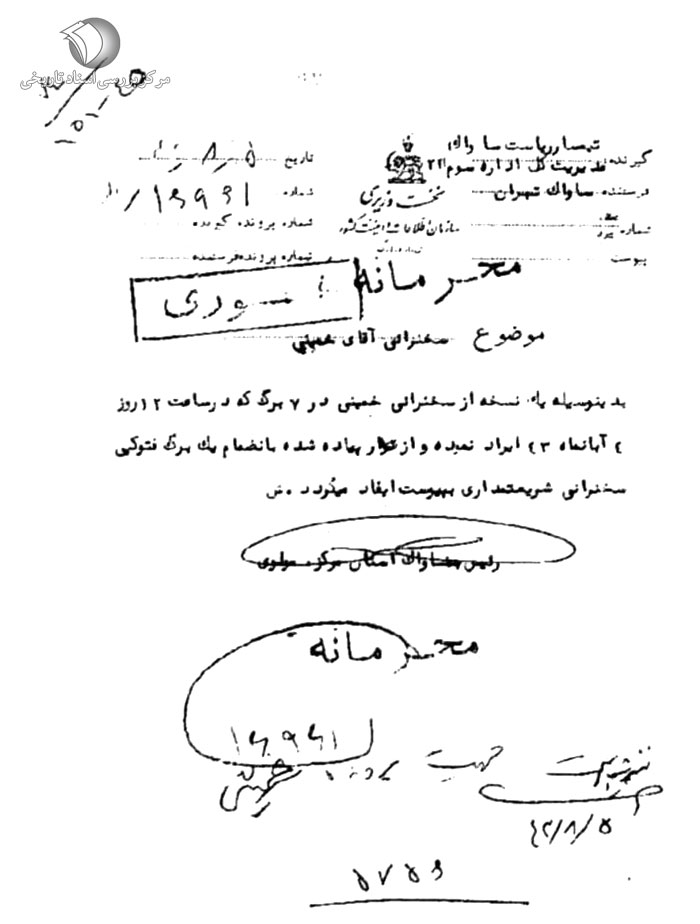 مرکز بررسی اسناد تاریخی
گیرنده تیمسار ریاست ساواک
مدیریت کل اداره سوم
فرستنده ساواک تهران
شماره
پیوست
نخست وزیری
سازمان اطلاعات و امنیت کشور
تاریخ
شماره
شماره پرونده گیرنده
شماره پرونده فرستنده
محرمانه
فوری
موضوع سخنرانی آقای خمینی
بدینوسیله یک نسخه از سخنرانی خمینی در ۷ برگ که در ساعت ۱۲ روز
۴ آبانماه ۴۳ ایراد نموده و از نوار پیاده شده بانضمام یک برگ فتوکپی
سخنرانی شریعتمداری بپیوست ایفاد میگردد
رئیس ساواک استان مرکز. مولوی
محرمانه
۴۳/۸/۵